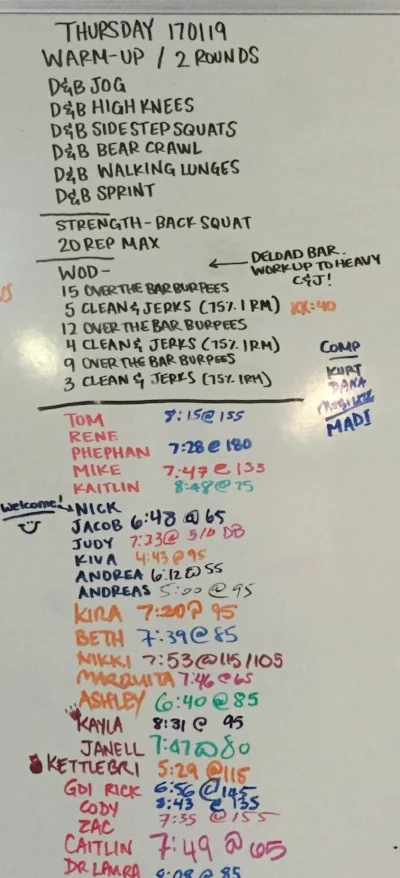 THURSDAY 170119
WARM-UP / 2 ROUNDS
D&B JOG
D&B HIGH KNEES
D&B SIDESTEP SQUATS
D&B BEAR CRAWL
D&B WALKING LUNGES
D&B SPRINT
STRENGTH - BACK SQUAT
20 REP MAX
DELOAD BAR.
WORK UP TO HEAVY
C&J!
WOD -
15 OVER THE BAR BURPEES
5 CLEAN & JERKS (75% 1RM) XX:40
12 OVER THE BAR BURPEES
4 CLEAN & JERKS (75% 1RM)
9 OVER THE BAR BURPEES
3 CLEAN & JERKS (75% 1RM)
COMP
KURT
DANA
MADI
TOM 8:15@155
RENE
PHEPHAN 7:28@180
MIKE 7:47@135
KAITLIN 8:48@75
Welcome! NICK
JACOB 6:48 @65
JUDY 7:33@ 5/10 DB
KIVA 4:43@95
ANDREA 6:12@55
ANDREAS 5:00@95
KIRA 7:20@ 95
BETH 7:39@85
NIKKI 7:53@115/105
MARQUITA 7:46@65
ASHLEY 6:40@85
KAYLA 8:31@ 95
JANELL 7:47@80
KETTLEBRI 5:29@115
GDI RICK 6:56@145
CODY 8:43@135
ZAC 7:35@155
CAITLIN 7:49@65
DR LAURA 6:08@85